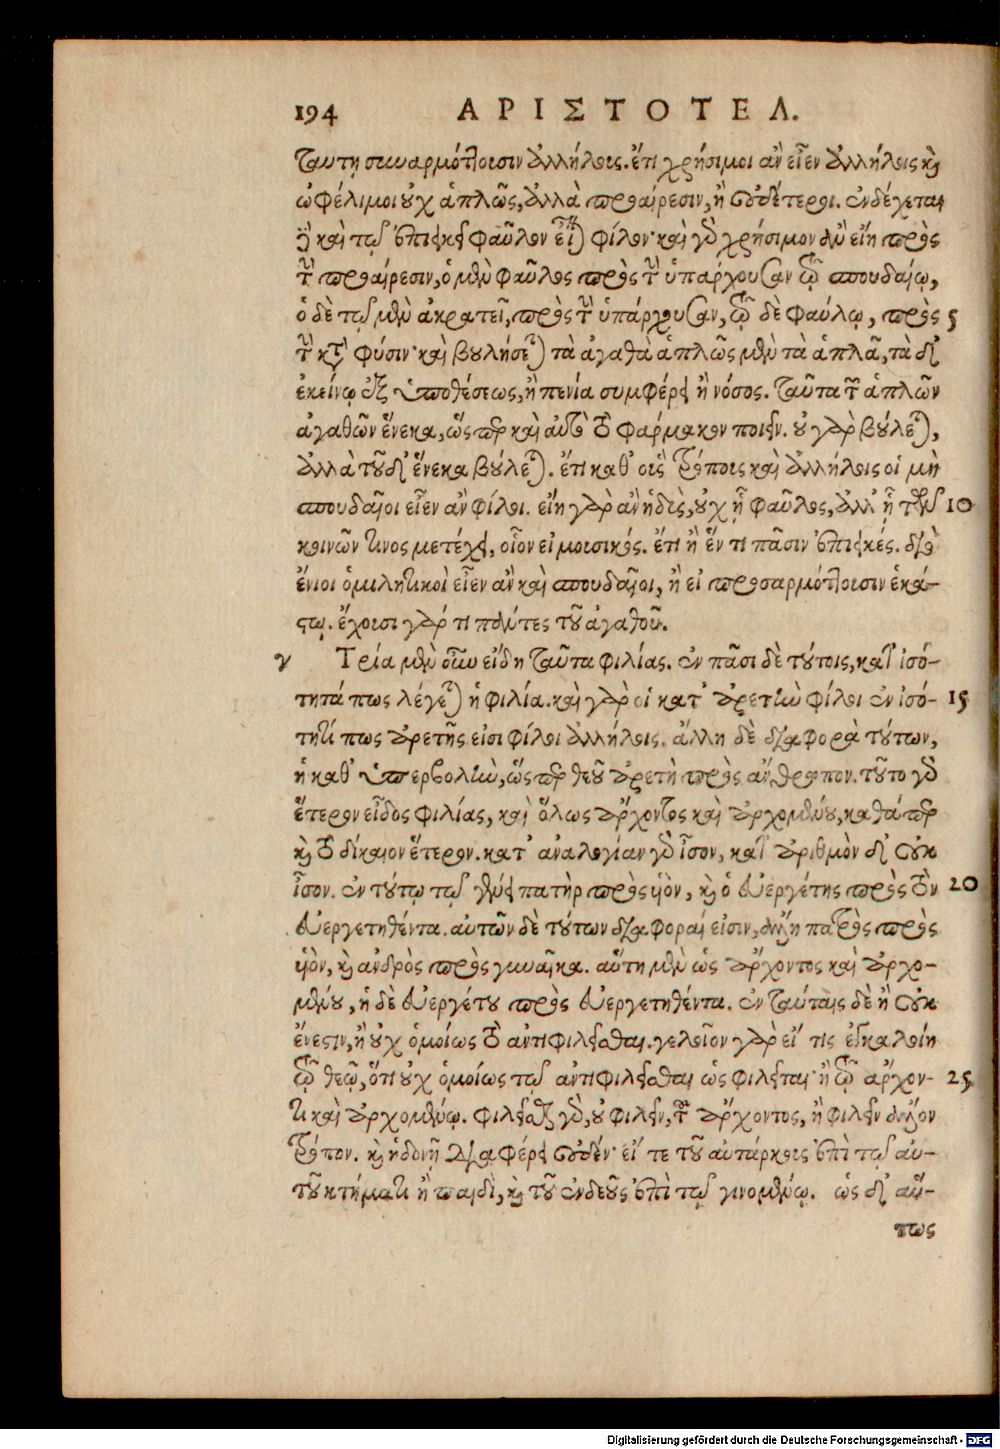 194 ΑΡΙΣΤΟΤΕΛ.
ταύτῃ συναρμόττουσιν ἀλλήλοις. ἔτι χρήσιμοι ἂν εἶεν ἀλλήλοις καὶ
ὠφέλιμοι οὐχ ἁπλῶς, ἀλλὰ προαίρεσιν, ἢ οὐδέτεροι. ἐνδέχεται
καὶ τῷ ἐπιεικεῖ φαῦλον εἶναι φίλον· καὶ γὰρ χρήσιμον ἂν εἴη πρὸς
τὴν προαίρεσιν, ὁ μὲν φαῦλος πρὸς τὴν ὑπάρχουσαν τῷ σπουδαίῳ,
ὁ δὲ τῷ μὲν ἀκρατεῖ, πρὸς τὴν ὑπάρχουσαν, τῷ δὲ φαύλῳ, πρὸς 5
τὴν κατὰ φύσιν· καὶ βουλήσεται τὰ ἀγαθὰ ἁπλῶς μὲν τὰ ἁπλᾶ, τὰ δ'
ἐκείνῳ ἐξ ὑποθέσεως, ἢ πενία συμφέρει ἢ νόσος. ταῦτα τῶν ἁπλῶν
ἀγαθῶν ἕνεκα, ὥσπερ καὶ αὐτὸ τὸ φάρμακον ποιεῖν. οὐ γὰρ βούλεται,
ἀλλὰ τοῦδ' ἕνεκα βούλεται. ἔτι καθ' οὓς τρόπους καὶ ἀλλήλοις οἱ μὴ
σπουδαῖοι εἶεν ἂν φίλοι. εἴη γὰρ ἂν ἡδὺς, οὐχ ᾗ φαῦλος, ἀλλ' ᾗ τῶν 10
κοινῶν τινος μετέχει, οἷον εἰ μουσικός. ἔτι ἢ ἕν τι πᾶσιν ἐπιεικές. διὸ
ἔνιοι ὁμιλητικοὶ εἶεν ἂν καὶ σπουδαῖοι, ἢ εἰ προσαρμόττουσιν ἑκά-
στῳ. ἔχουσι γάρ τι πάντες τοῦ ἀγαθοῦ.
γ Τρία μὲν οὖν εἴδη ταῦτα φιλίας. ἐν πᾶσι δὲ τούτοις, κατ' ἰσό-
τητά πως λέγεται ἡ φιλία. καὶ γὰρ οἱ κατ' ἀρετὴν φίλοι ἐν ἰσό- 15
τητί πως ἀρετῆς εἰσι φίλοι ἀλλήλοις. ἄλλη δὲ διαφορὰ τούτων,
ἡ καθ' ὑπερβολὴν, ὥσπερ θεοῦ ἀρετὴ πρὸς ἄνθρωπον. τοῦτο γὰρ
ἕτερον εἶδος φιλίας, καὶ ὅλως ἄρχοντος καὶ ἀρχομένου, καθάπερ
καὶ τὸ δίκαιον ἕτερον. κατ' ἀναλογίαν γὰρ ἴσον, κατ' ἀριθμὸν δ' οὐκ
ἴσον. ἐν τούτῳ τῷ γένει πατὴρ πρὸς υἱὸν, καὶ ὁ εὐεργέτης πρὸς τὸν 20
εὐεργετηθέντα. αὐτῶν δὲ τούτων διαφοραί εἰσιν, ἄλλη πατρὸς πρὸς
υἱὸν, καὶ ἀνδρὸς πρὸς γυναῖκα. αὕτη μὲν ὡς ἄρχοντος καὶ ἀρχο-
μένου, ἡ δὲ εὐεργέτου πρὸς εὐεργετηθέντα. ἐν ταύταις δὲ ἢ οὐκ
ἔνεστιν, ἢ οὐχ ὁμοίως τὸ ἀντιφιλεῖσθαι. γελοῖον γὰρ εἴ τις ἐγκαλοίη
τῷ θεῷ, ὅτι οὐχ ὁμοίως τῷ ἀντιφιλεῖσθαι ὡς φιλεῖται· ἢ τῷ ἄρχον- 25
τι καὶ ἀρχομένῳ. φιλεῖσθαι γὰρ, οὐ φιλεῖν, τοῦ ἄρχοντος, ἢ φιλεῖν ἄλλον
τρόπον. καὶ ἡδονῇ διαφέρει οὐδέν· εἴ τε τοῦ αὐτάρκους ἐπὶ τῷ αὑ-
τοῦ κτήματι ἢ παιδὶ, καὶ τοῦ ἐνδεοῦς ἐπὶ τῷ γινομένῳ. ὡς δ' αὕ-
τως
Digitalisierung gefördert durch die Deutsche Forschungsgemeinschaft - DFG